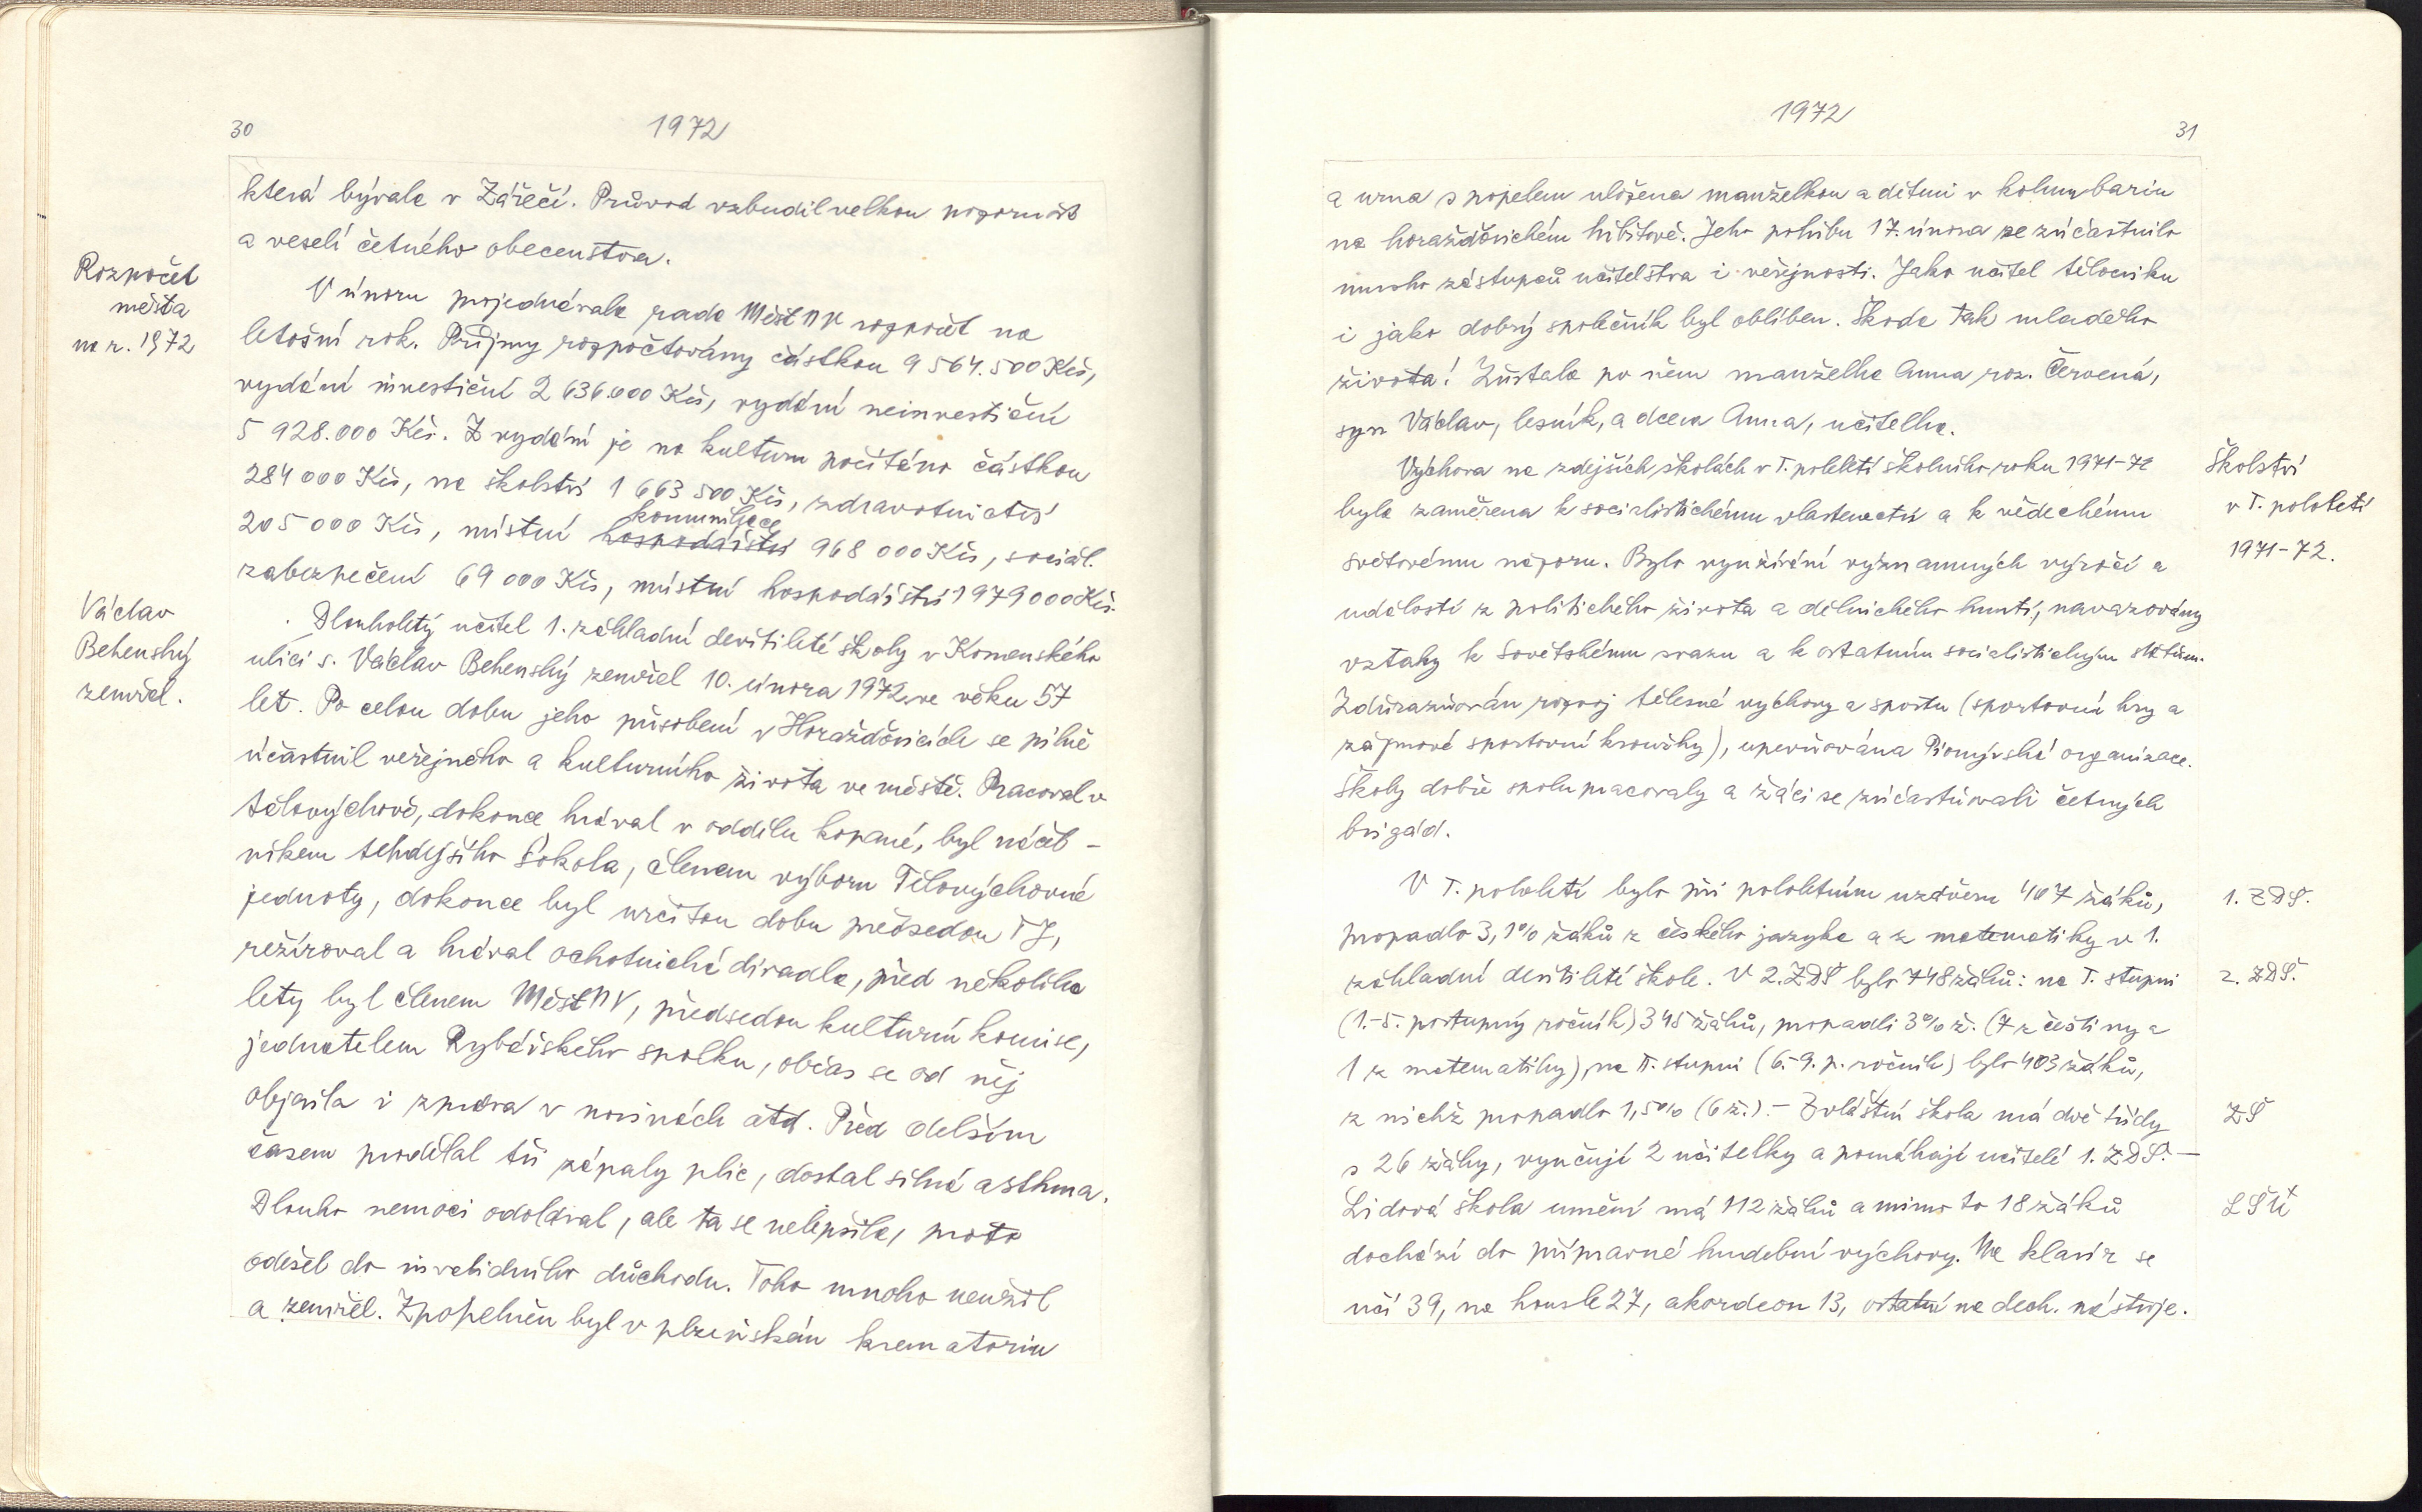 30
1972
která bývala v Zářečí. Průvod vzbudil velkou pozornost
a veselí četného obecenstva.
Rozpočet
města
na r. 1972
V únoru projednávala rada MěstNV rozpočet na
letošní rok. Příjmy rozpočtovány částkou 9 564.500 Kčs,
vydání investiční 2 636.000 Kčs, vydání neinvestiční
5 928.000 Kčs. Z vydání je na kulturu počítáno částkou
284 000 Kčs, na školství 1 663 500 Kčs, zdravotnictví
komunikace
205 000 Kčs, místní hospodářství 968 000 Kčs, sociál.
zabezpečení 69 000 Kčs, místní hospodářství 1 979 000 Kčs.
Václav
Behenský
zemřel.
Dlouholetý učitel 1. základní devítileté školy v Komenského
ulici s. Václav Behenský zemřel 10. února 1972 ve věku 57
let. Po celou dobu jeho působení v Horažďovicích se pilně
účastnil veřejného a kulturního života ve městě. Pracoval v
tělovýchově, dokonce hrával v oddílu kopané, byl náčel-
níkem tehdejšího Sokola, členem výboru Tělovýchovné
jednoty, dokonce byl určitou dobu předsedou TJ,
režíroval a hrával ochotnické divadlo, před několika
lety byl členem MěstNV, předsedou kulturní komise,
jednatelem Rybářského spolku, občas se od něj
objevila i zpráva v novinách atd. Před delším
časem prodělal tři zápaly plic, dostal silné asthma.
Dlouho nemoci odolával, ale ta se nelepšila, proto
odešel do invalidního důchodu. Toho mnoho neužil
a zemřel. Zpopelněn byl v plzeňském krematoriu
1972
31
a urna s popelem uložena manželkou a dětmi v kolumbariu
na horažďovickém hřbitově. Jeho pohřbu 17. února se zúčastnilo
mnoho zástupců učitelstva i veřejnosti. Jako učitel tělocviku
i jako dobrý společník byl oblíben. Škoda tak mladého
života! Zůstala po něm manželka Anna roz. Červená,
syn Václav, lesník, a dcera Anna, učitelka.
Školství
v I. pololetí
1971-72.
Výchova na zdejších školách v I. pololetí školního roku 1971-72
byla zaměřena k socialistickému vlastenectví a k vědeckému
světovému názoru. Bylo využívání významných výročí a
událostí z politického života a dělnického hnutí, navazovány
vztahy k Sovětskému svazu a k ostatním socialistickým státům.
Zdůrazňován rozvoj tělesné výchovy a sportu (sportovní hry a
zájmové sportovní kroužky), upevňována Pionýrská organizace.
Školy dobře spolupracovaly a žáci se zúčastňovali četných
brigád.
1. ZDŠ.
V I. pololetí bylo při pololetním uzávěru 407 žáků,
propadlo 3,1% žáků z českého jazyka a z matematiky v 1.
základní devítileté škole. V 2. ZDŠ bylo 748 žáků: na I. stupni
2. ZDŠ.
(1.-5. postupný ročník) 345 žáků, propadli 3% ž. (7 z češtiny a
1 z matematiky), na II. stupni (6.-9. p. ročník) bylo 403 žáků,
z nichž propadlo 1,5% (6 ž.). - Zvláštní škola má dvě třídy
ZŠ
s 26 žáky, vyučují 2 učitelky a pomáhají učitelé 1. ZDŠ. -
Lidová škola umění má 112 žáků a mimo to 18 žáků
LŠU
dochází do přípravné hudební výchovy. Na klavír se
učí 39, na housle 27, akordeon 13, ostatní na dech. nástroje.